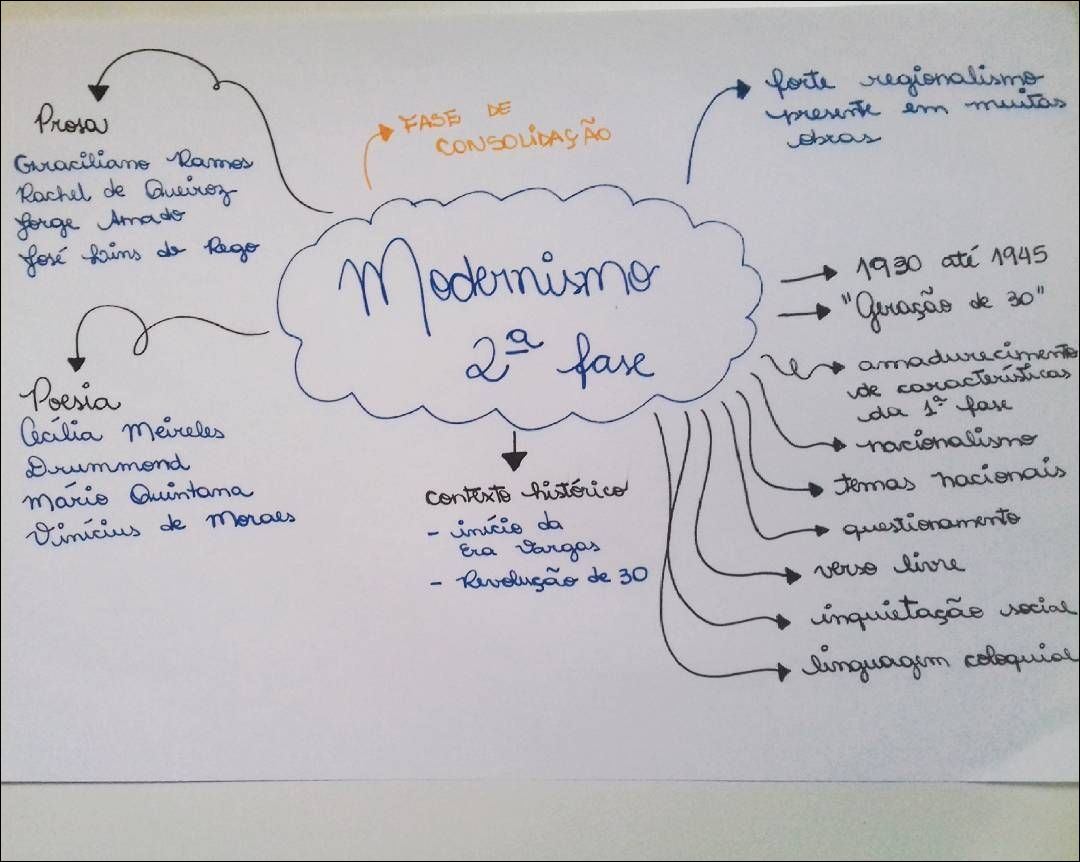 Prosa
Graciliano Ramos
Rachel de Queiroz
Jorge Amado
José Lins do Rego
Poesia
Cecília Meireles
Drummond
Mário Quintana
Vinícius de Moraes
FASE DE
CONSOLIDAÇÃO
Modernismo
2ª fase
contexto histórico
- início da
Era Vargas
- Revolução de 30
forte regionalismo
presente em muitas
obras
1930 até 1945
"Geração de 30"
amadurecimento
de características
da 1ª fase
nacionalismo
temas nacionais
questionamento
verso livre
inquietação social
linguagem coloquial